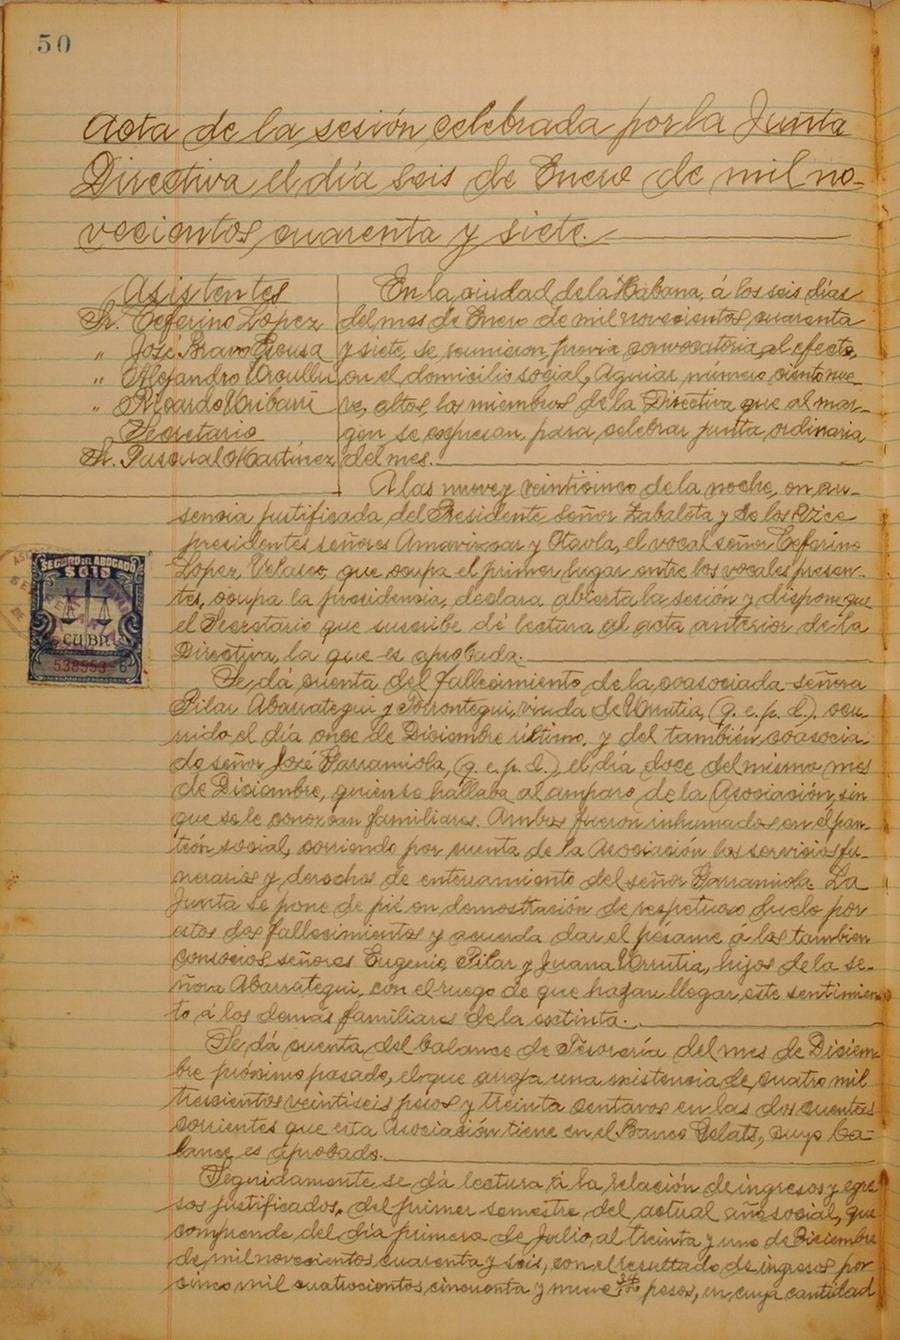 50
Acta de la sesión celebrada por la Junta
Directiva el día seis de Enero de mil no-
vecientos cuarenta y siete.
Asistentes
Sr. Ceferino López
" José Bravo
" Alejandro
" Ricardo Uribarri
Secretario
Sr. Pascual Martínez
En la ciudad de la Habana, á los seis días
del mes de Enero de mil novecientos cuarenta
y siete, se reunieron, previa convocatoria al efecto,
en el domicilio social, Aguiar número ciento nue-
ve, altos, los miembros de la Directiva que al mar-
gen se expresan, para celebrar junta ordinaria
del mes.
A las nueve y veinticinco de la noche, en au-
sencia justificada del Presidente señor Zabaleta y de los Vice
presidentes señores y Otaola, el vocal señor Ceferino
López Velasco, que ocupa el primer lugar entre los vocales presen-
tes, ocupa la presidencia, declara abierta la sesión y dispone que
el Secretario que suscribe dé lectura al acta anterior de la
Directiva, la que es aprobada.
SEGURO DEL ABOGADO
5 CTS
CUBA
538553
Se dá cuenta del fallecimiento de la coasociada señora
Pilar Abarrategui y Torrontegui, viuda de Urrutia, (q. e. p. d.) ocu-
rrido el día once de Diciembre último, y del también coasocia-
do señor José Garramiola, (q. e. p. d.) el día doce del mismo mes
de Diciembre, quien se hallaba al amparo de la Asociación, sin
que se le conozcan familiares. Ambos fueron inhumados en el pan-
teón social, corriendo por cuenta de la Asociación los servicios fu-
nerarios y derechos de enterramiento del señor Garramiola. La
Junta se pone de pié en demostración de respetuoso duelo por
estos dos fallecimientos y acuerda dar el pésame á los tambien
consocios, señores Eugenio, Pilar y Juana Urrutia, hijos de la se-
ñora Abarrategui, con el ruego de que hagan llegar este sentimien-
to á los demás familiares de la extinta.
Se dá cuenta del balance de Tesorería del mes de Diciem-
bre próximo pasado, el que arroja una existencia de cuatro mil
trescientos veintiseis pesos y treinta centavos en las dos cuentas
corrientes que esta Asociación tiene en el Banco Gelats, cuyo ba-
lance es aprobado.
Seguidamente se dá lectura á la relación de ingresos y egre
sos justificados, del primer semestre del actual año social, que
comprende del día primero de Julio al treinta y uno de Diciembre
de mil novecientos cuarenta y seis, con el resultado de ingresos por
cinco mil cuatrocientos cincuenta y nueve pesos, en cuya cantidad